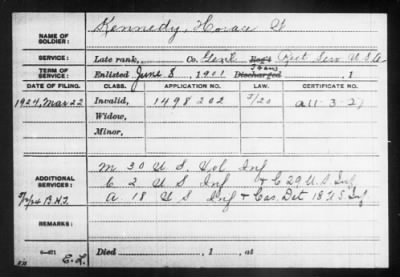 NAME OF SOLDIER: Kennedy, Horace G
SERVICE: Late rank, Co. Genl Reg't Rect Serv U.S.A.
TERM OF SERVICE: Enlisted June 8, 1901 Discharged , 1
DATE OF FILING. CLASS. APPLICATION NO. LAW. CERTIFICATE NO.
1924, Mar 22 Invalid, 1498202 A11-3-27
Widow,
Minor,
M 30 U S Vol Inf
ADDITIONAL SERVICES: C 2 U S Inf & C 29 U.S Inf
A 18 U S Inf & Cas. Det 18 U S Inf
REMARKS:
E.L. Died , 1 , at